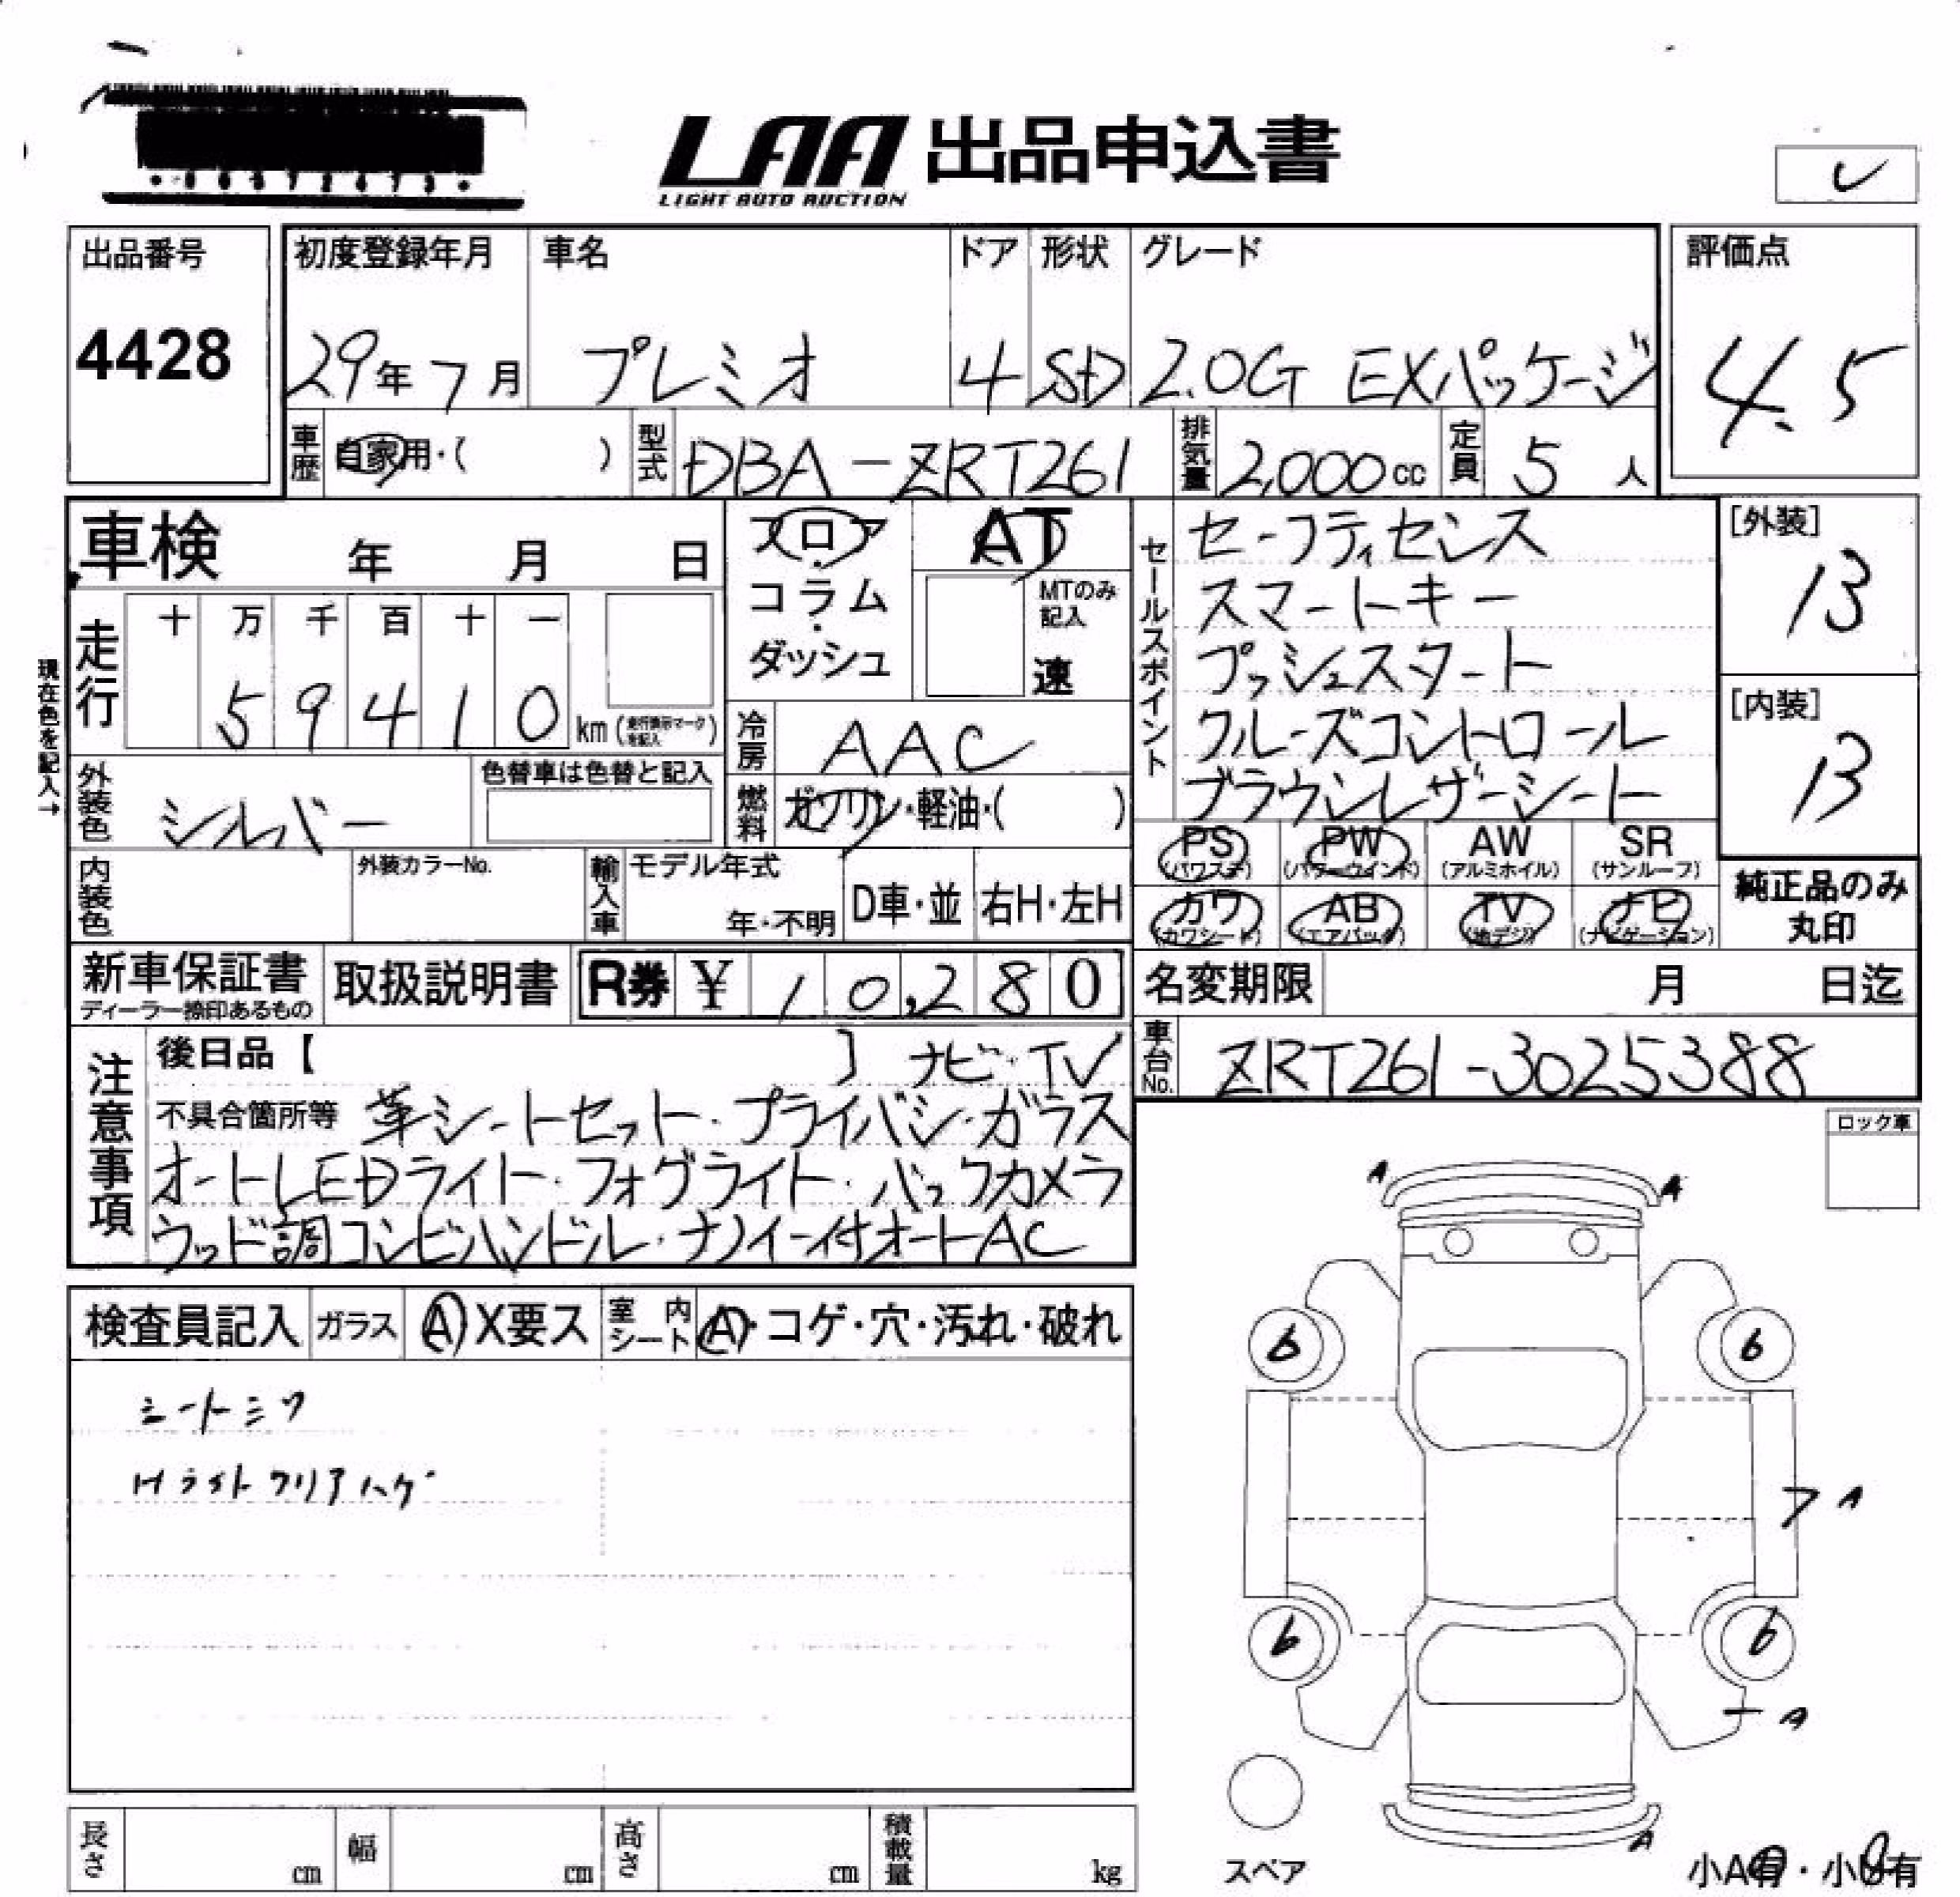 LAA 出品申込書
LIGHT AUTO AUCTION
出品番号 初度登録年月 車名 ドア 形状 グレード 評価点
4428 29年7月 プレミオ 4 SD 2.0G EXパッケージ 4.5
車歴 自家用・( ) 型式 DBA-ZRT261 排気量 2,000cc 定員 5人
車検 年 月 日
フロア・コラム・ダッシュ
AT
MTのみ記入
速
セールスポイント
セーフティセンス
スマートキー
プッシュスタート
クルーズコントロール
ブラウンレザーシート
[外装]
13
[内装]
13
現在色を記入→
走行 十 万 千 百 十 一
59410 km
冷房 AAC
外装色 シルバー 色替車は色替と記入
燃料 ガソリン・軽油・( )
PS (パワステ) PW (パワーウインド) AW (アルミホイル) SR (サンルーフ)
カワ (カワシート) AB (エアバック) TV (地デジ) ナビ (ナビゲーション)
純正品のみ丸印
内装色 外装カラーNo. 輸入車 モデル年式 年・不明 D車・並 右H・左H
新車保証書 取扱説明書 R券 ¥ 10,280
ディーラー捺印あるもの
名変期限 月 日迄
車台No. ZRT261-3025388
注意事項
後日品【 】 ナビ・TV
不具合箇所等 革シートセット・プライバシーガラス
オートLEDライト・フォグライト・バックカメラ
ウッド調コンビハンドル・ナノイー付オートAC
ロック車
検査員記入 ガラス A X要ス 室内シート A・コゲ・穴・汚れ・破れ
シートシワ
Hライトクリアハゲ
A A
6 6
A
6 6
A
A
スペア
小A有・小U有
長さ cm 幅 cm 高さ cm 積載量 kg